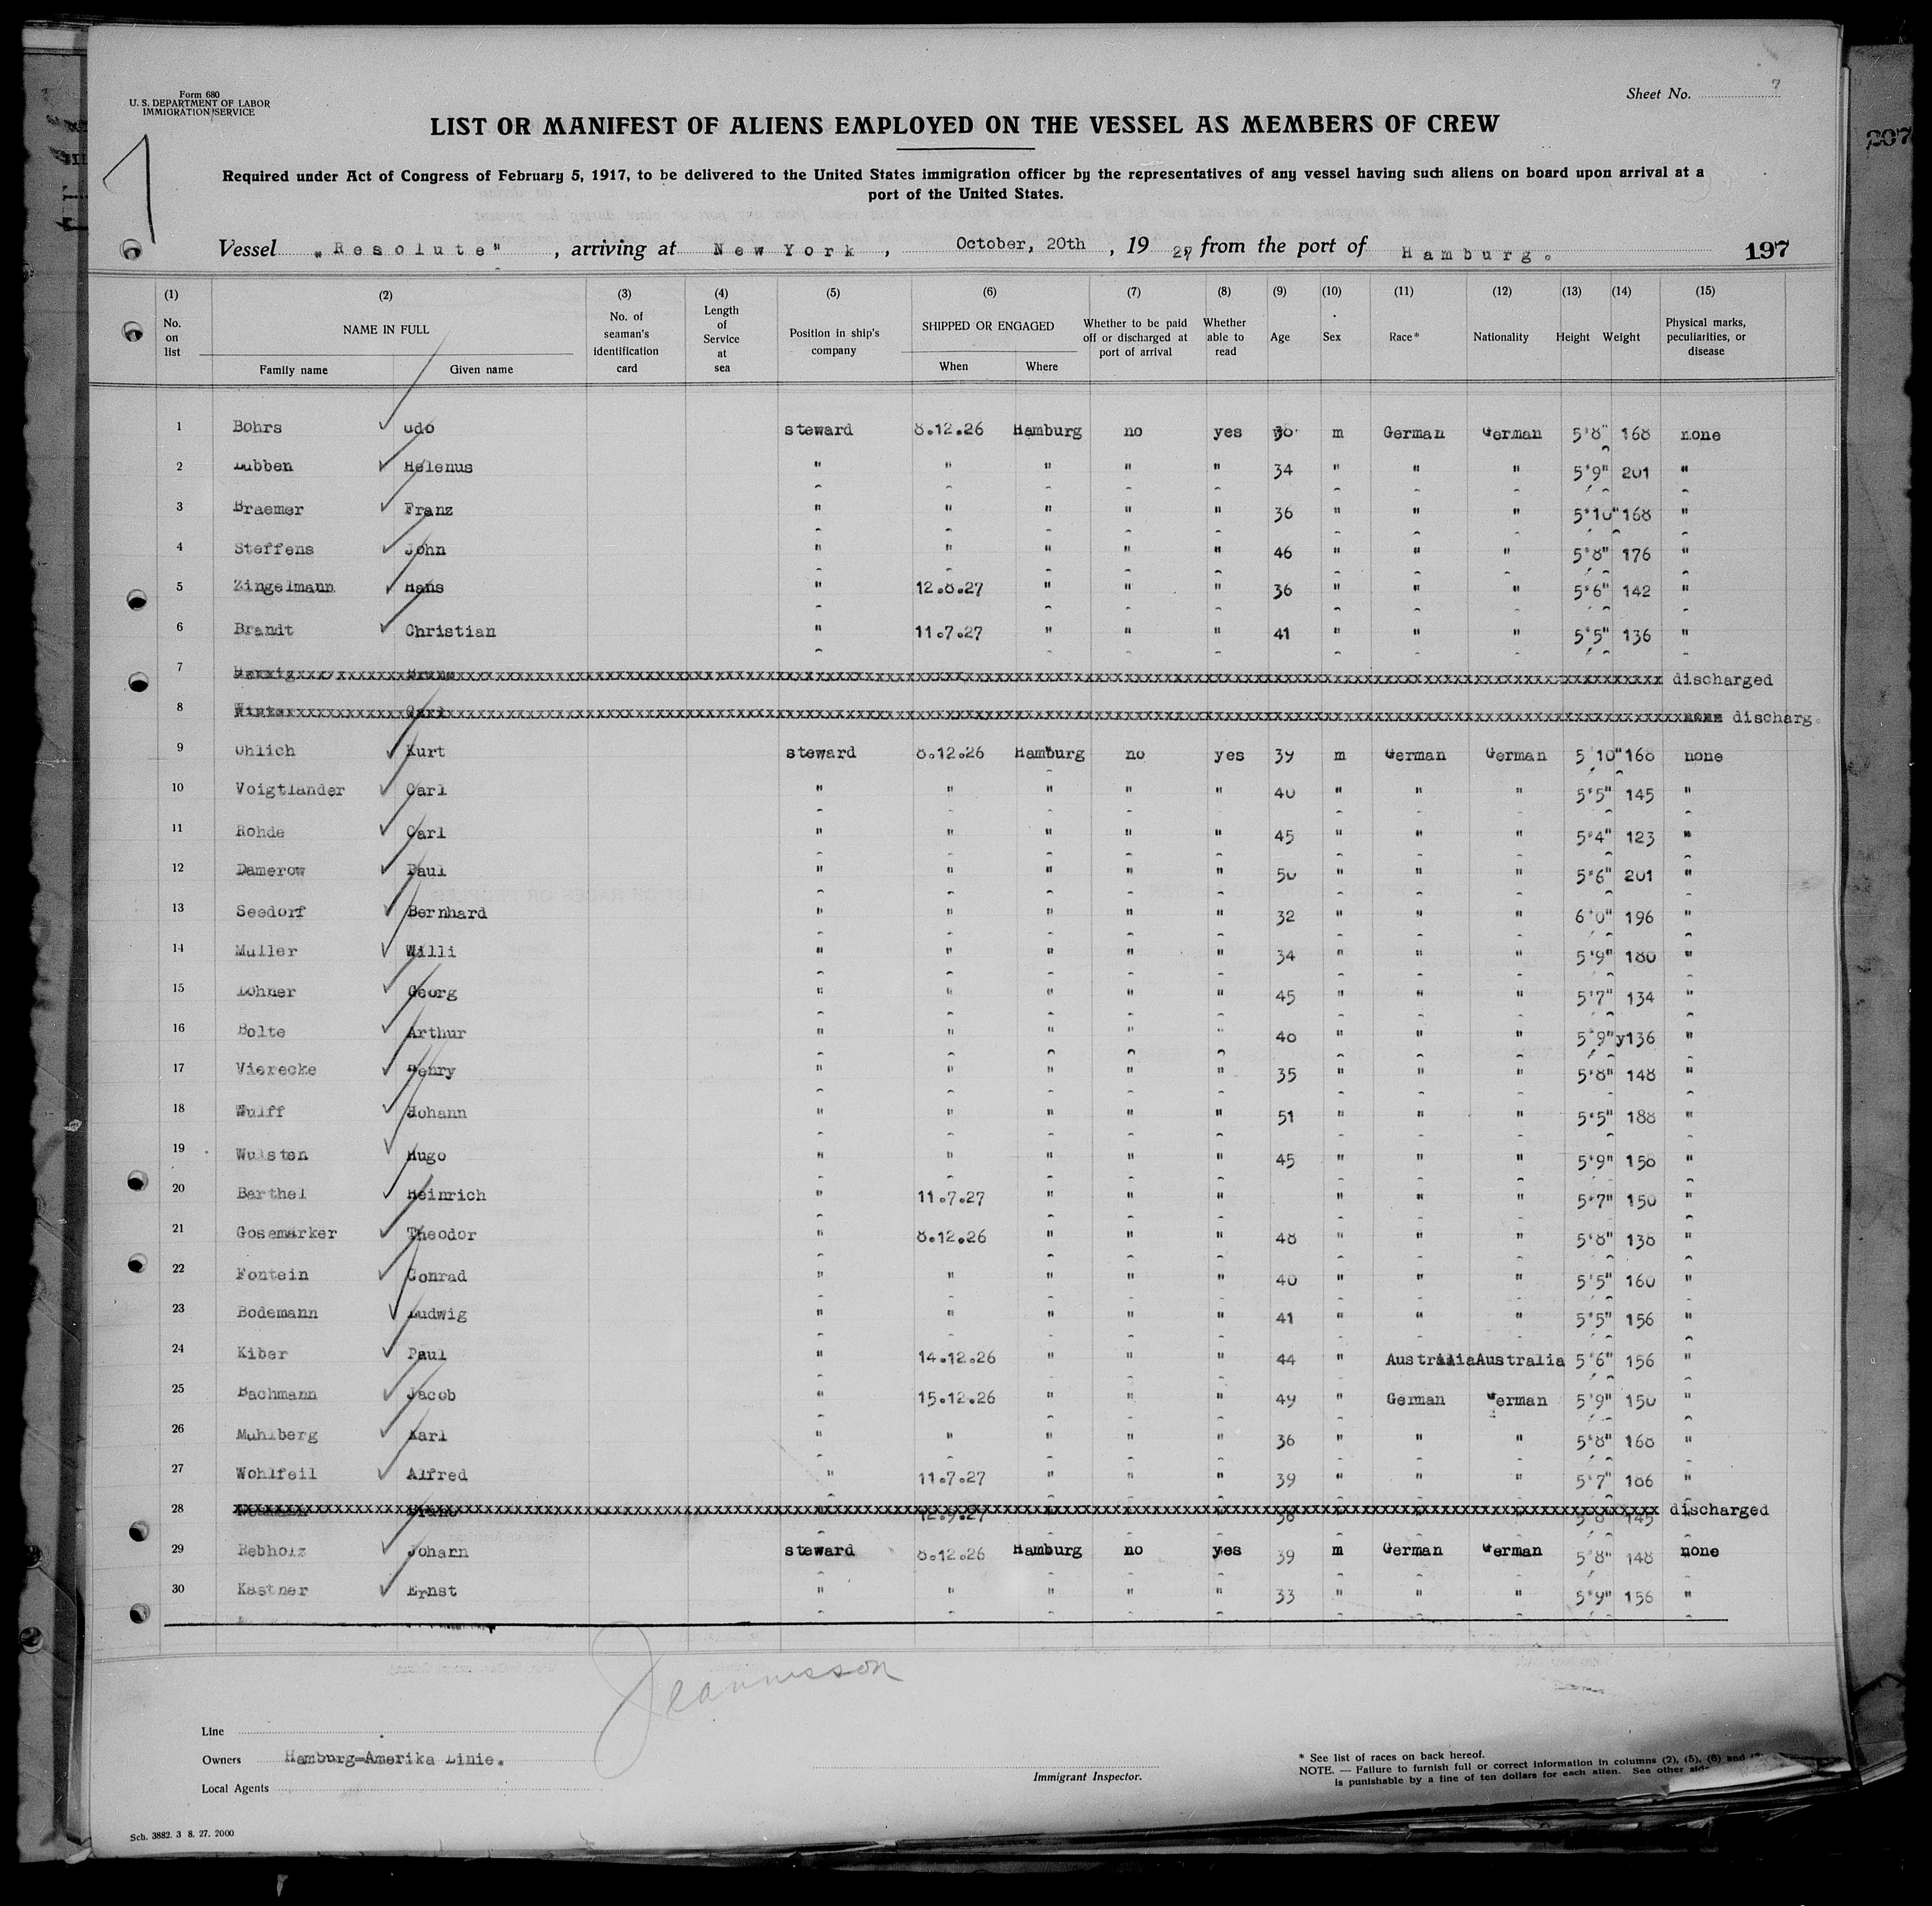 Form 680
U. S. DEPARTMENT OF LABOR
IMMIGRATION SERVICE
Sheet No. 7
LIST OR MANIFEST OF ALIENS EMPLOYED ON THE VESSEL AS MEMBERS OF CREW
Required under Act of Congress of February 5, 1917, to be delivered to the United States immigration officer by the representatives of any vessel having such aliens on board upon arrival at a
port of the United States.
Vessel "Resolute", arriving at New York, October, 20th, 19 27 from the port of Hamburg. 197
(1) (2) (3) (4) (5) (6) (7) (8) (9) (10) (11) (12) (13) (14) (15)
No. on list NAME IN FULL Family name Given name No. of seaman's identification card Length of Service at sea Position in ship's company SHIPPED OR ENGAGED When Where Whether to be paid off or discharged at port of arrival Whether able to read Age Sex Race* Nationality Height Weight Physical marks, peculiarities, or disease
1 Bohrs Udo steward 8.12.26 Hamburg no yes m German German 5'8" 168 none
2 Lubben Helenus " " " " " 34 " " " 5'9" 201 "
3 Braemer Franz " " " " " 36 " " " 5'10" 168 "
4 Steffens John " " " " " 46 " " " 5'8" 176 "
5 Zingelmann Hans " 12.8.27 " " " 36 " " " 5'6" 142 "
6 Brandt Christian " 11.7.27 " " " 41 " " " 5'5" 136 "
7 discharged
8 Winter Carl none discharg.
9 Uhlich Kurt steward 8.12.26 Hamburg no yes 39 m German German 5'10" 168 none
10 Voigtlander Carl " " " " " 40 " " " 5'5" 145 "
11 Rohde Carl " " " " " 45 " " " 5'4" 123 "
12 Damerow Paul " " " " " 50 " " " 5'6" 201 "
13 Seedorf Bernhard " " " " " 32 " " " 6'0" 196 "
14 Muller Willi " " " " " 34 " " " 5'9" 180 "
15 Lohner Georg " " " " " 45 " " " 5'7" 134 "
16 Bolte Arthur " " " " " 40 " " " 5'9"y136 "
17 Vierecke Henry " " " " " 35 " " " 5'8" 148 "
18 Wulff Johann " " " " " 51 " " " 5'5" 188 "
19 Wulsten Hugo " " " " " 45 " " " 5'9" 158 "
20 Barthel Heinrich " 11.7.27 " " " " " " 5'7" 150 "
21 Gosemarker Theodor " 8.12.26 " " " 48 " " " 5'8" 138 "
22 Fontein Conrad " " " " " 40 " " " 5'5" 160 "
23 Bodemann Ludwig " " " " " 41 " " " 5'5" 156 "
24 Kiber Paul " 14.12.26 " " " 44 " Australia Australia 5'6" 156 "
25 Bachmann Jacob " 15.12.26 " " " 49 " German German 5'9" 150 "
26 Muhlberg Karl " " " " " 36 " " " 5'8" 168 "
27 Wohlfeil Alfred " 11.7.27 " " " 39 " " " 5'7" 186 "
28 Bruno 12.9.27 145 discharged
29 Rebholz Johann steward 8.12.26 Hamburg no yes 39 m German German 5'8" 148 none
30 Kastner Ernst " " " " " 33 " " " 5'9" 156 "
Line
Owners Hamburg-Amerika Linie.
Local Agents
Immigrant Inspector.
* See list of races on back hereof.
NOTE. — Failure to furnish full or correct information in columns (2), (5), (6) and
is punishable by a fine of ten dollars for each alien. See other
Sch. 3882. 3 8. 27. 2000